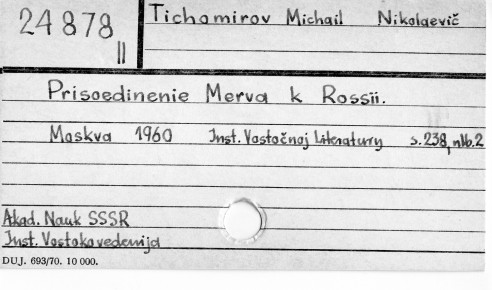 24 878
II
Tichomirov Michail Nikolaevič
Prisoedinenie Merva k Rossii.
Moskva 1960 Inst. Vostočnoj Literatury s. 238, nlb. 2
Akad. Nauk SSSR
Inst. Vostokovedenija
DUJ. 693/70. 10 000.